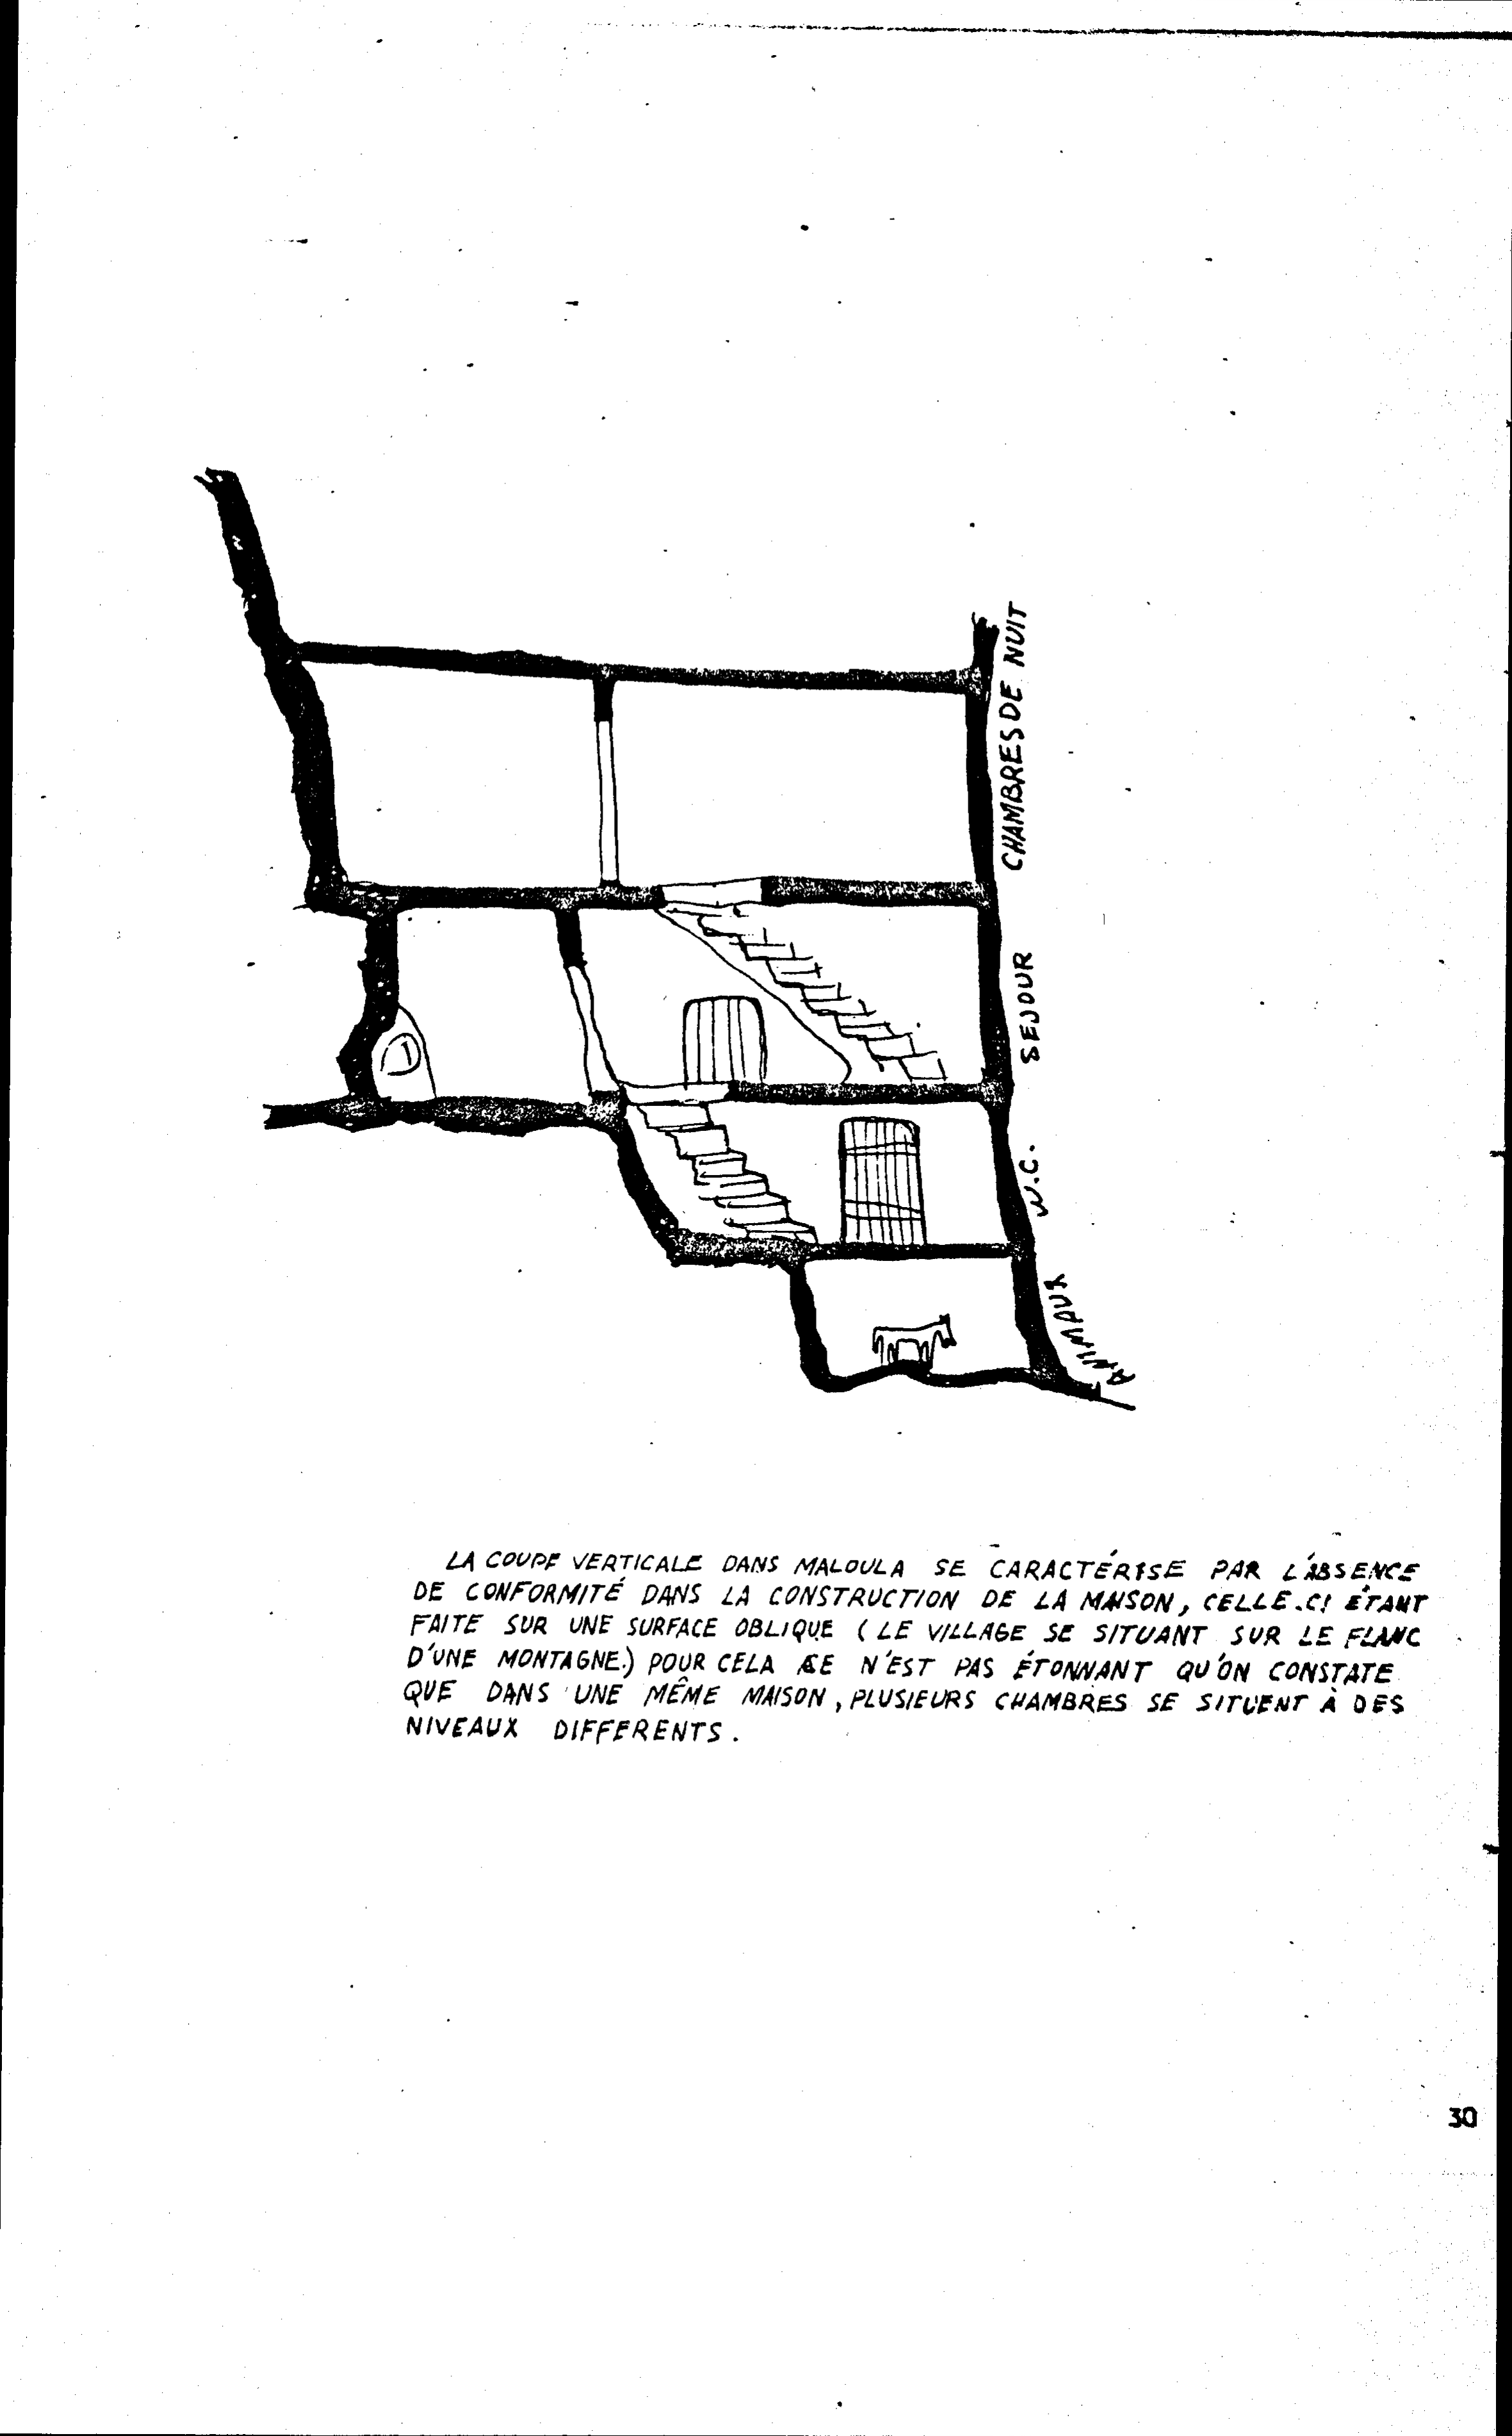 CHAMBRES DE NUIT
SEJOUR
W.C.
ANIMAUX
LA COUPE VERTICALE DANS MALOULA SE CARACTÉRISE PAR L'ABSENCE
DE CONFORMITÉ DANS LA CONSTRUCTION DE LA MAISON, CELLE-CI ÉTANT
FAITE SUR UNE SURFACE OBLIQUE (LE VILLAGE SE SITUANT SUR LE FLANC
D'UNE MONTAGNE.) POUR CELA CE N'EST PAS ÉTONNANT QU'ON CONSTATE
QUE DANS UNE MÊME MAISON, PLUSIEURS CHAMBRES SE SITUENT À DES
NIVEAUX DIFFERENTS.
30